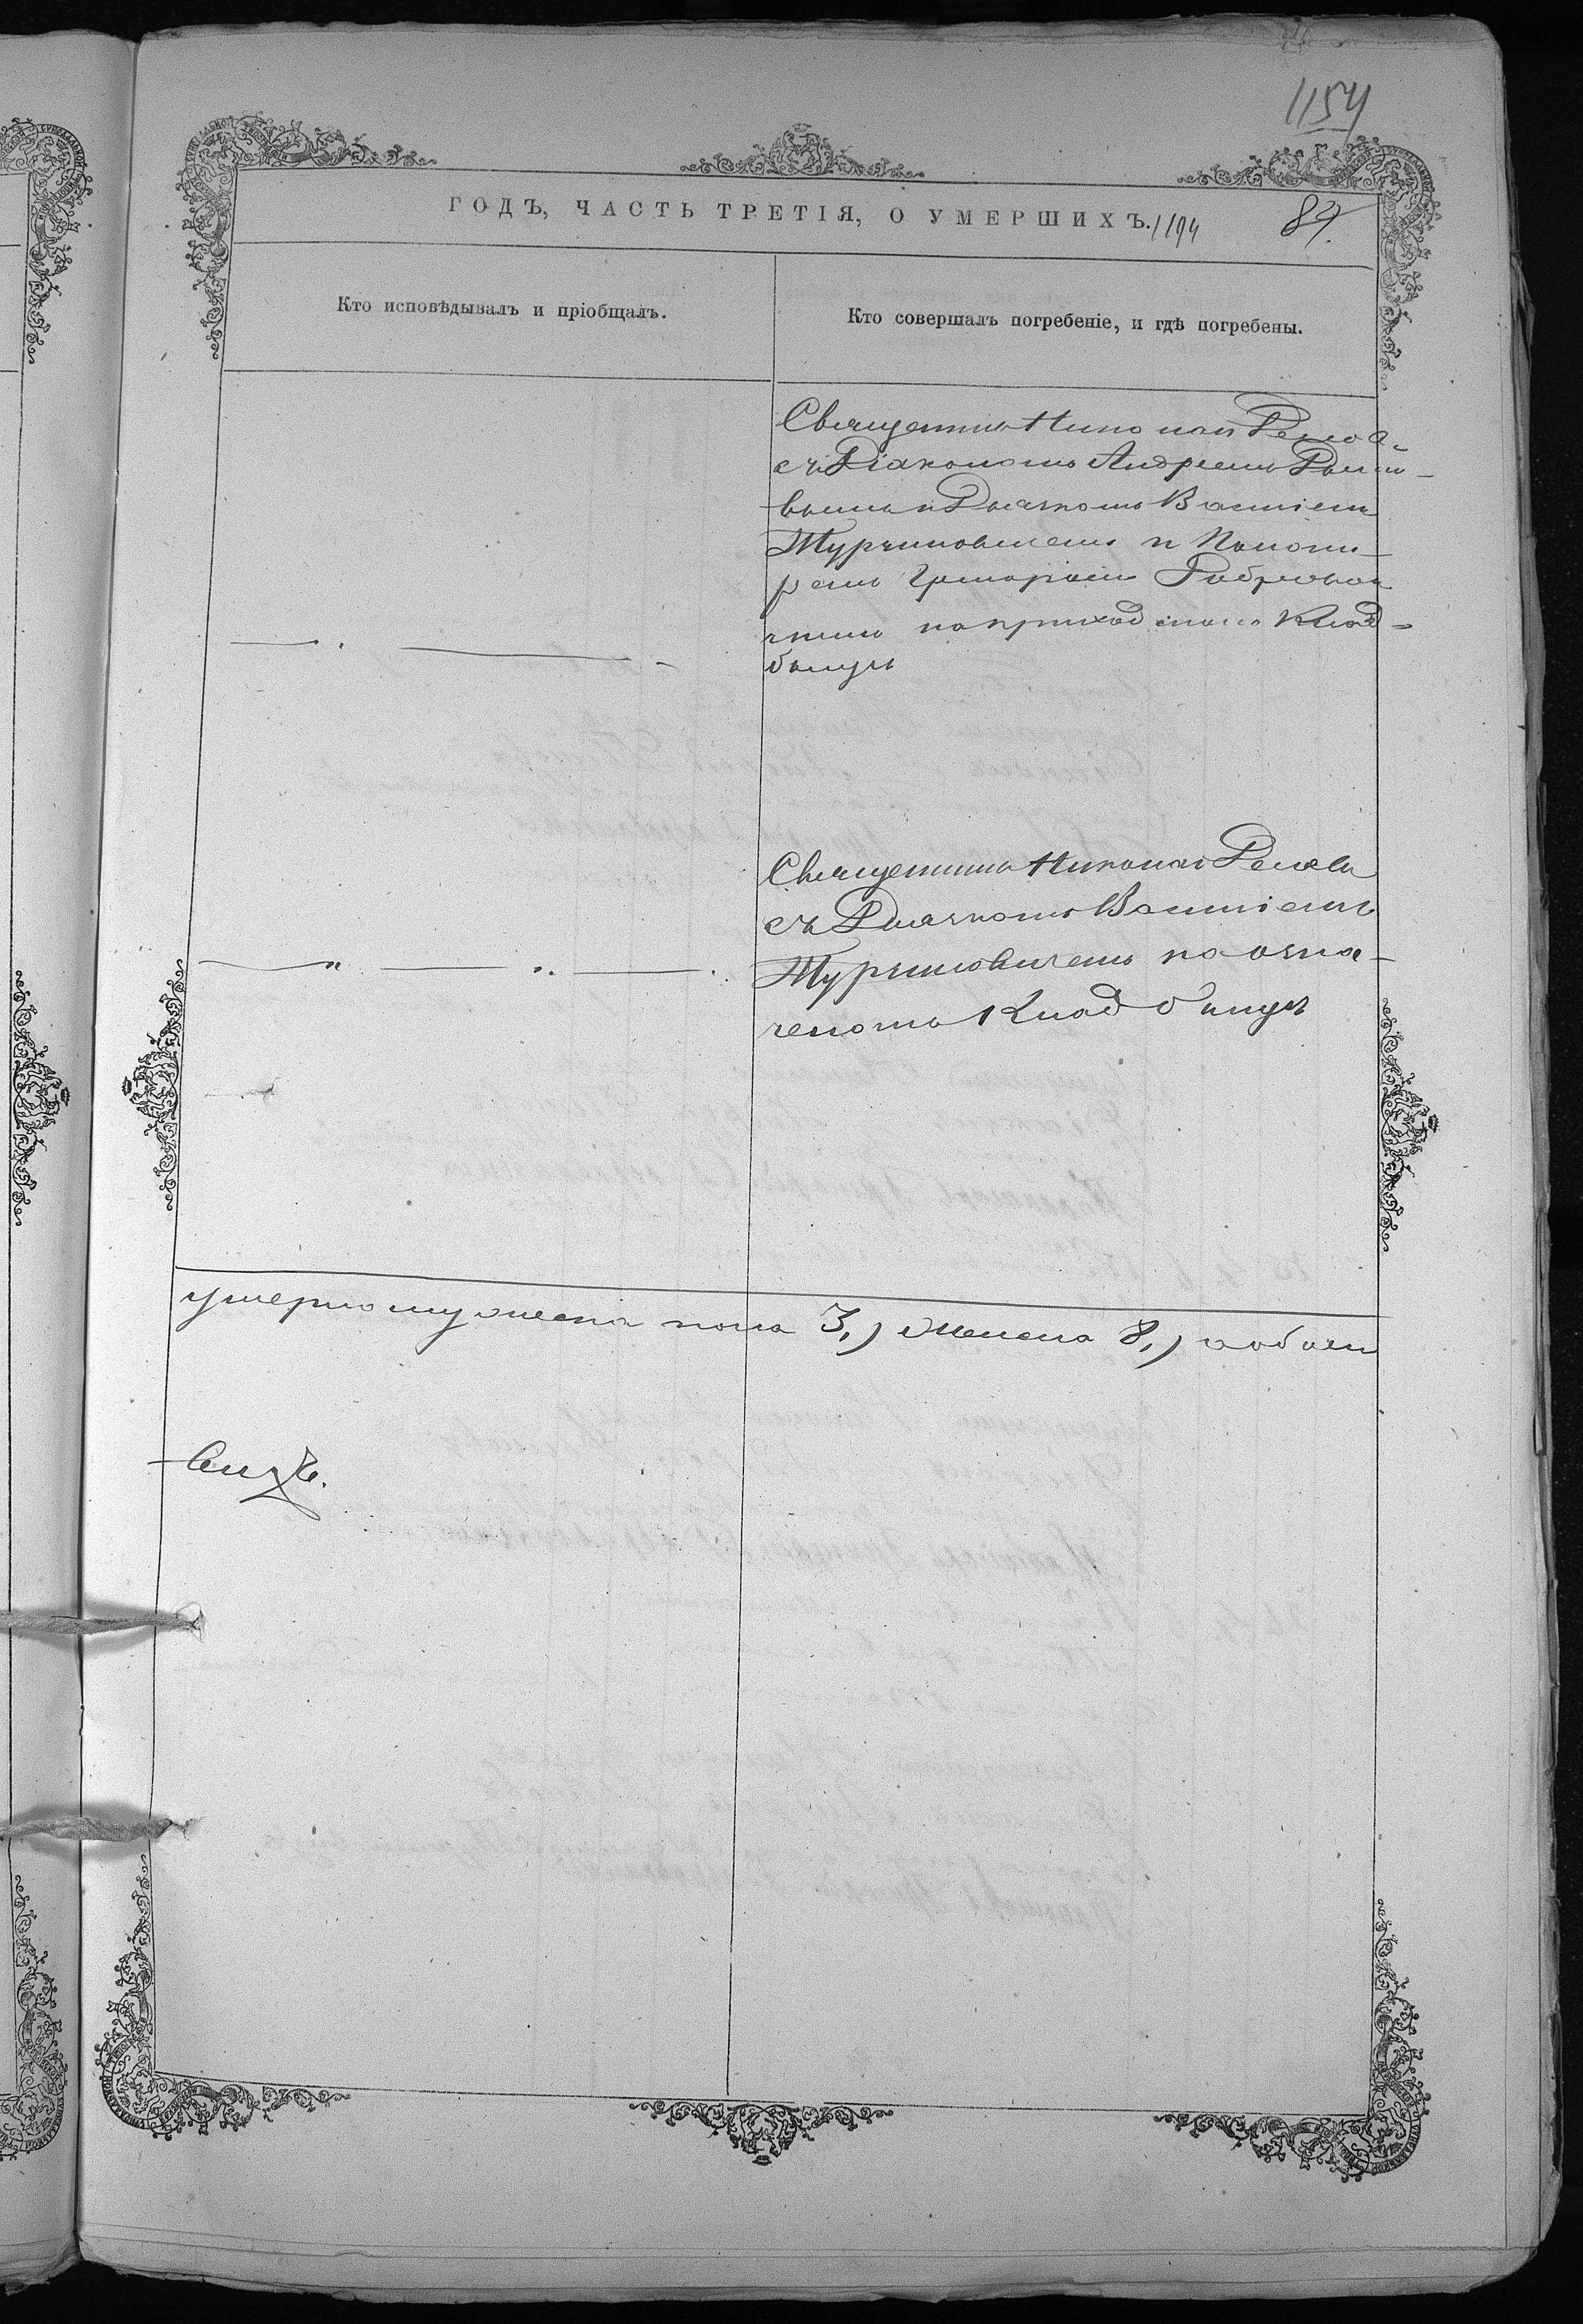 1154
ГОДЪ, ЧАСТЬ ТРЕТІЯ, О УМЕРШИХЪ. 1194
87.
Кто исповѣдывалъ и пріобщалъ.
Кто совершалъ погребеніе, и гдѣ погребены.
Священникъ Николай
съ Діакономъ Андреемъ
вымъ и Дьячкомъ Василіемъ
Журиновичемъ и Понома-
ремъ Григоріемъ
на приходскомъ Клад-
бищѣ
Священникъ Николай
съ Дьячкомъ Василіемъ
Журиновичемъ на озна-
ченомъ Кладбищѣ
умерло мужеска пола 3,) женска 8,) а обоего